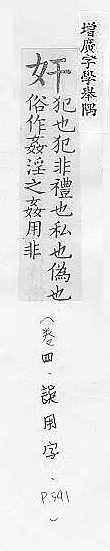 增廣字學舉隅
奸
犯也犯非禮也私也僞也
俗作姦淫之姦用非
(卷四.誤用字.P.541)